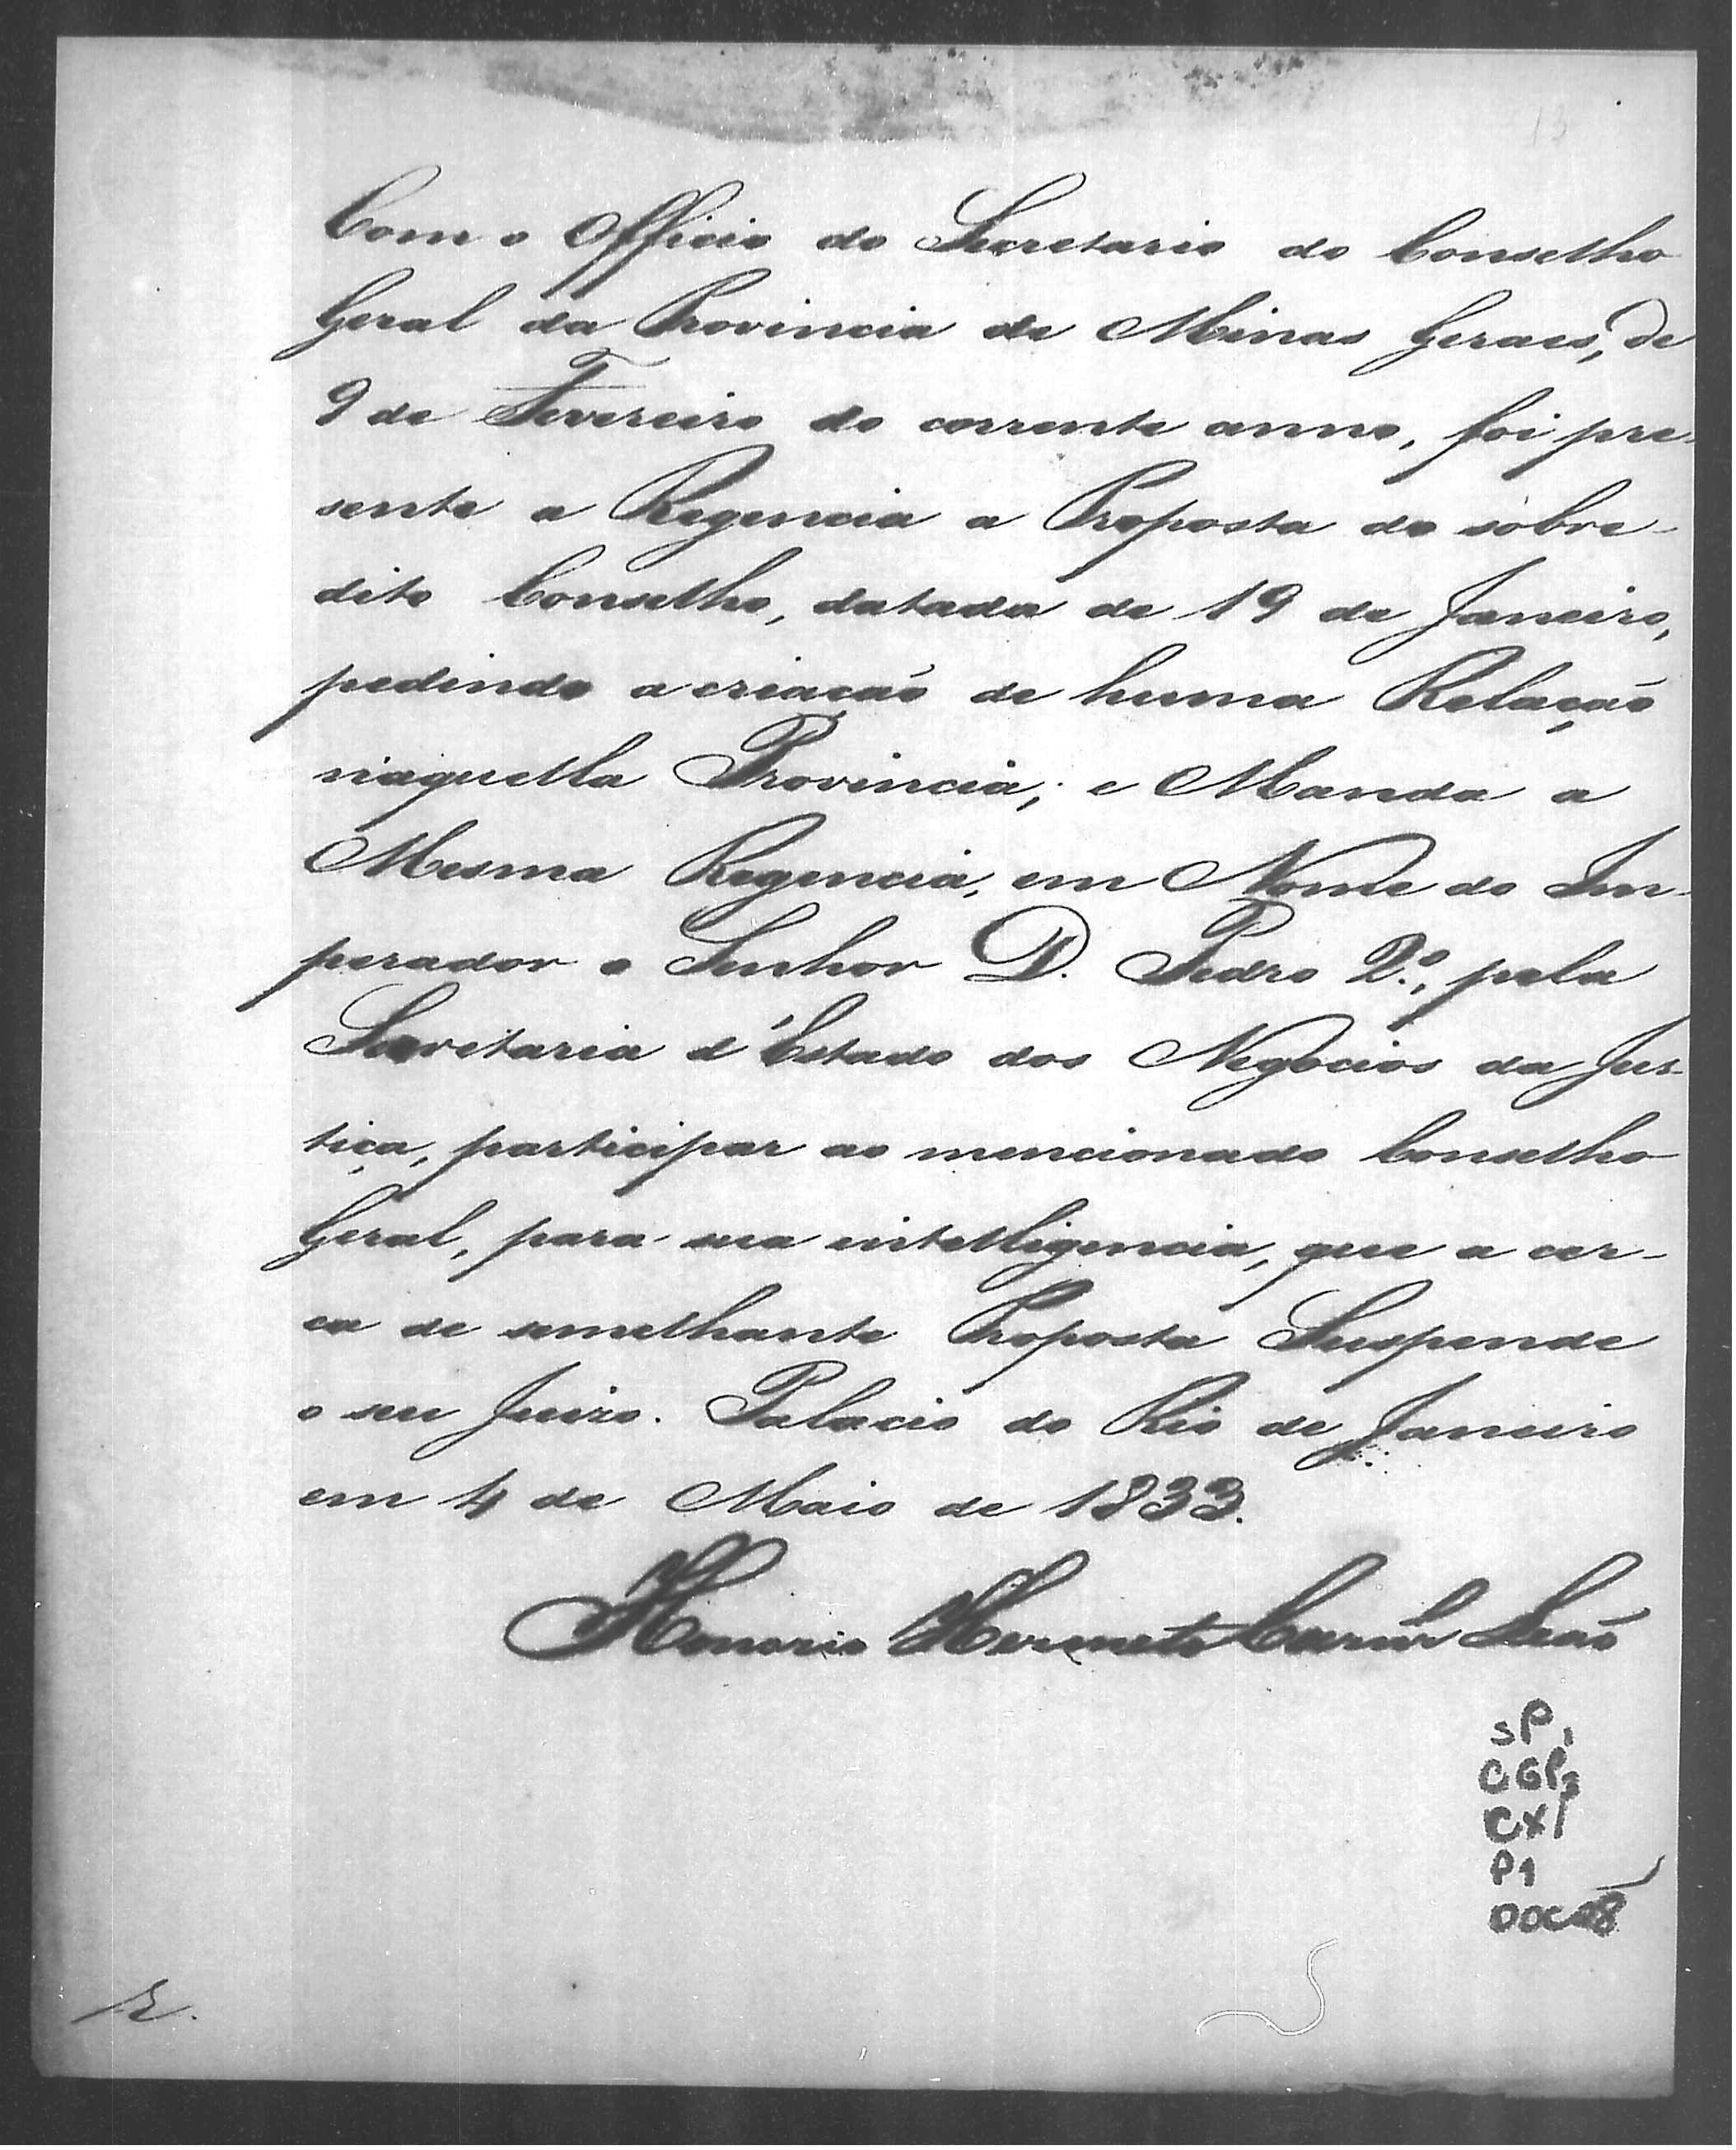 13
Com o Officio do Secretario do Conselho
Geral da Provincia de Minas Geraes, de
9 de Fevereiro do corrente anno, foi pre-
sente a Regencia a Proposta do sobre-
dito Conselho, datada de 19 de Janeiro,
pedindo a criacão de huma Relação
naquella Provincia; e Manda a
Mesma Regencia, em Nome do Im-
perador o Senhor D. Pedro 2.º, pela
Secretaria d'Estado dos Negocios da Jus-
tiça, participar ao mencionado Conselho
Geral, para sua intelligencia, que a cer-
ca de semelhante Proposta Suspende
o seu Juizo. Palacio do Rio de Janeiro
em 4 de Maio de 1833.
Honorio Hermeto Carnr.º Leão
SP,
CGP,
CX1
P1
DOC 8